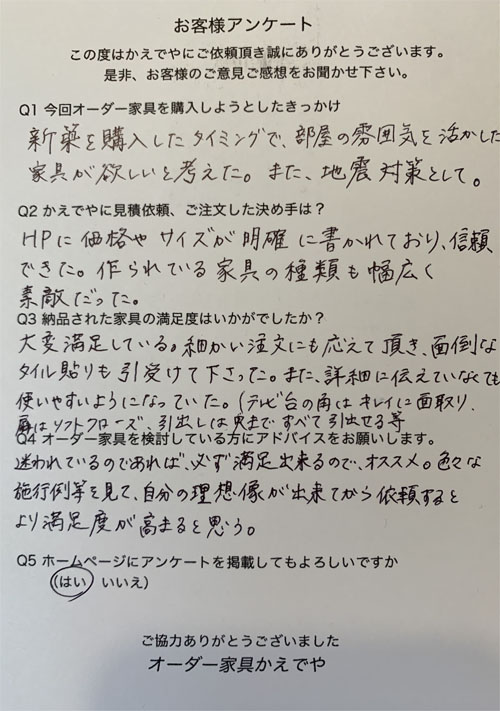 お客様アンケート
この度はかえでやにご依頼頂き誠にありがとうございます。
是非、お客様のご意見ご感想をお聞かせ下さい。
Q1 今回オーダー家具を購入しようとしたきっかけ
新築を購入したタイミングで、部屋の雰囲気を活かした
家具が欲しいと考えた。また、地震対策として。
Q2 かえでやに見積依頼、ご注文した決め手は？
HPに価格やサイズが明確に書かれており、信頼
できた。作られている家具の種類も幅広く
素敵だった。
Q3 納品された家具の満足度はいかがでしたか？
大変満足している。細かい注文にも応えて頂き、面倒な
タイル貼りも引受けて下さった。また、詳細に伝えていなくても
使いやすいようになっていた。（テレビ台の角はキレイに面取り、
扉はソフトクローズ、引出しは奥まですべて引出せる等
Q4 オーダー家具を検討している方にアドバイスをお願いします。
迷われているのであれば、必ず満足出来るので、オススメ。色々な
施行例等を見て、自分の理想像が出来てから依頼すると
より満足度が高まると思う。
Q5 ホームページにアンケートを掲載してもよろしいですか
（はい いいえ）
ご協力ありがとうございました
オーダー家具かえでや